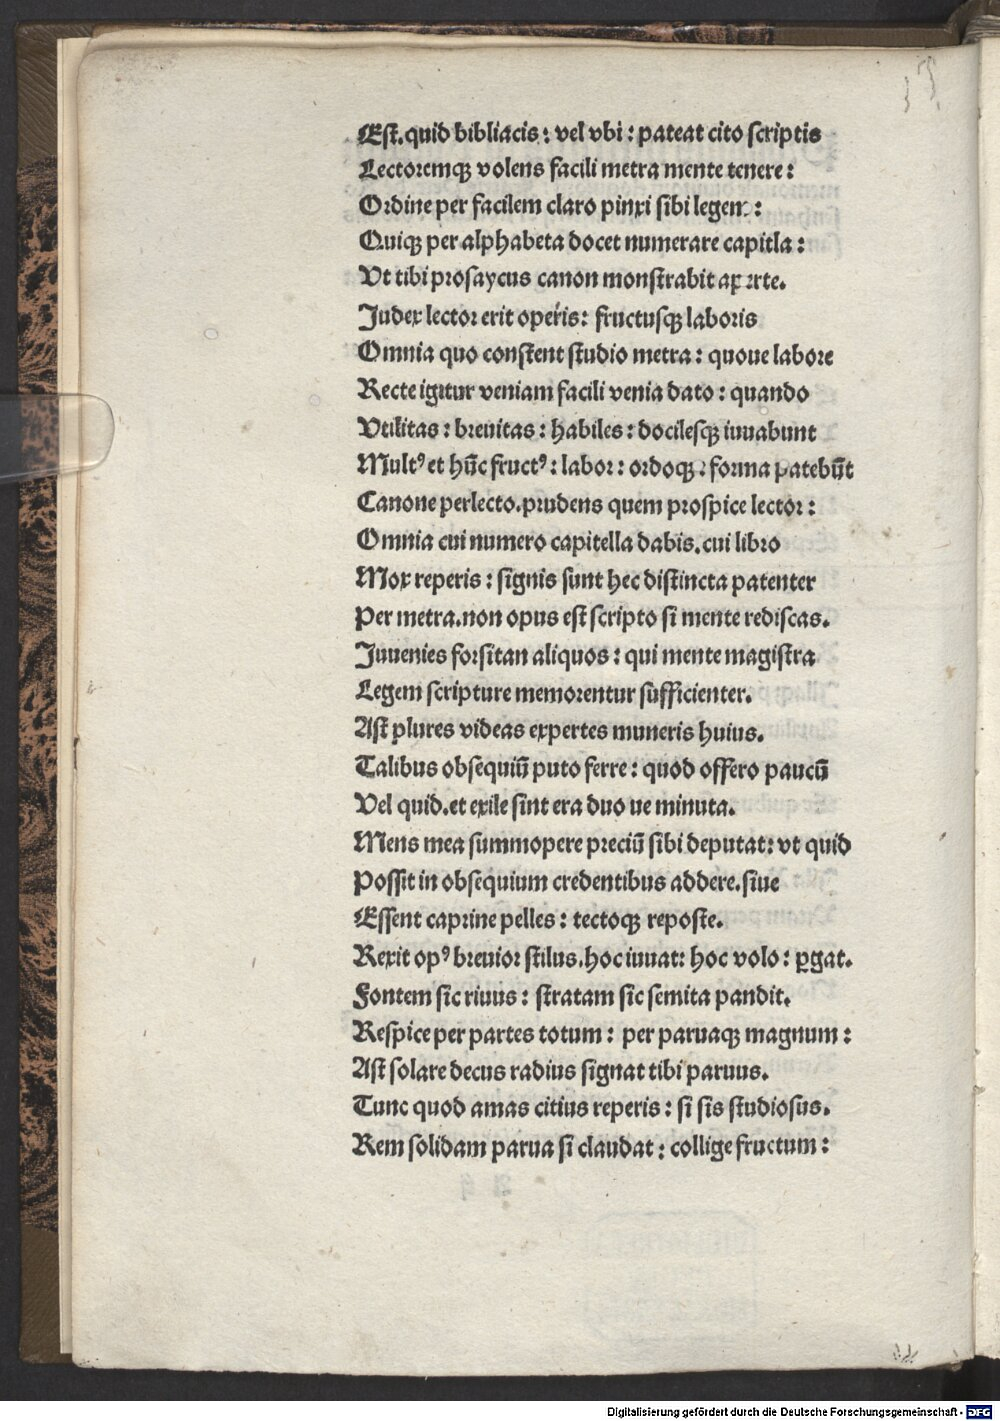 Est. quid bibliacis : vel vbi : pateat cito scriptis
Lectoremqꝫ volens facili metra mente tenere :
Ordine per facilem claro pinxi sibi legem :
Quiqꝫ per alphabeta docet numerare capitla :
Vt tibi prosaycus canon monstrabit aꝑerte.
Judex lector erit operis : fructusqꝫ laboris
Omnia quo constent studio metra : quoue labore
Recte igitur veniam facili venia dato : quando
Vtilitas : breuitas : habiles : docilesqꝫ iuuabunt
Multꝰ et hūc fructꝰ : labor : ordoqꝫ : forma patebūt
Canone perlecto. prudens quem prospice lector :
Omnia cui numero capitella dabis. cui libro
Mox reperis : signis sunt hec distincta patenter
Per metra. non opus est scripto si mente rediscas.
Juuenies forsitan aliquos : qui mente magistra
Legem scripture memorentur sufficienter.
Ast plures videas expertes muneris huius.
Talibus obsequiū puto ferre : quod offero paucū
Vel quid. et exile sint era duo ue minuta.
Mens mea summopere preciū sibi deputat: vt quid
Possit in obsequium credentibus addere. siue
Essent caprine pelles : tectoqꝫ reposte.
Rexit opꝰ breuior stilus. hoc iuuat: hoc volo : ꝑgat.
Fontem sic riuus : stratam sic semita pandit.
Respice per partes totum : per paruaqꝫ magnum :
Ast solare decus radius signat tibi paruus.
Tunc quod amas citius reperis : si sis studiosus.
Rem solidam parua si claudat : collige fructum :
Digitalisierung gefördert durch die Deutsche Forschungsgemeinschaft - DFG